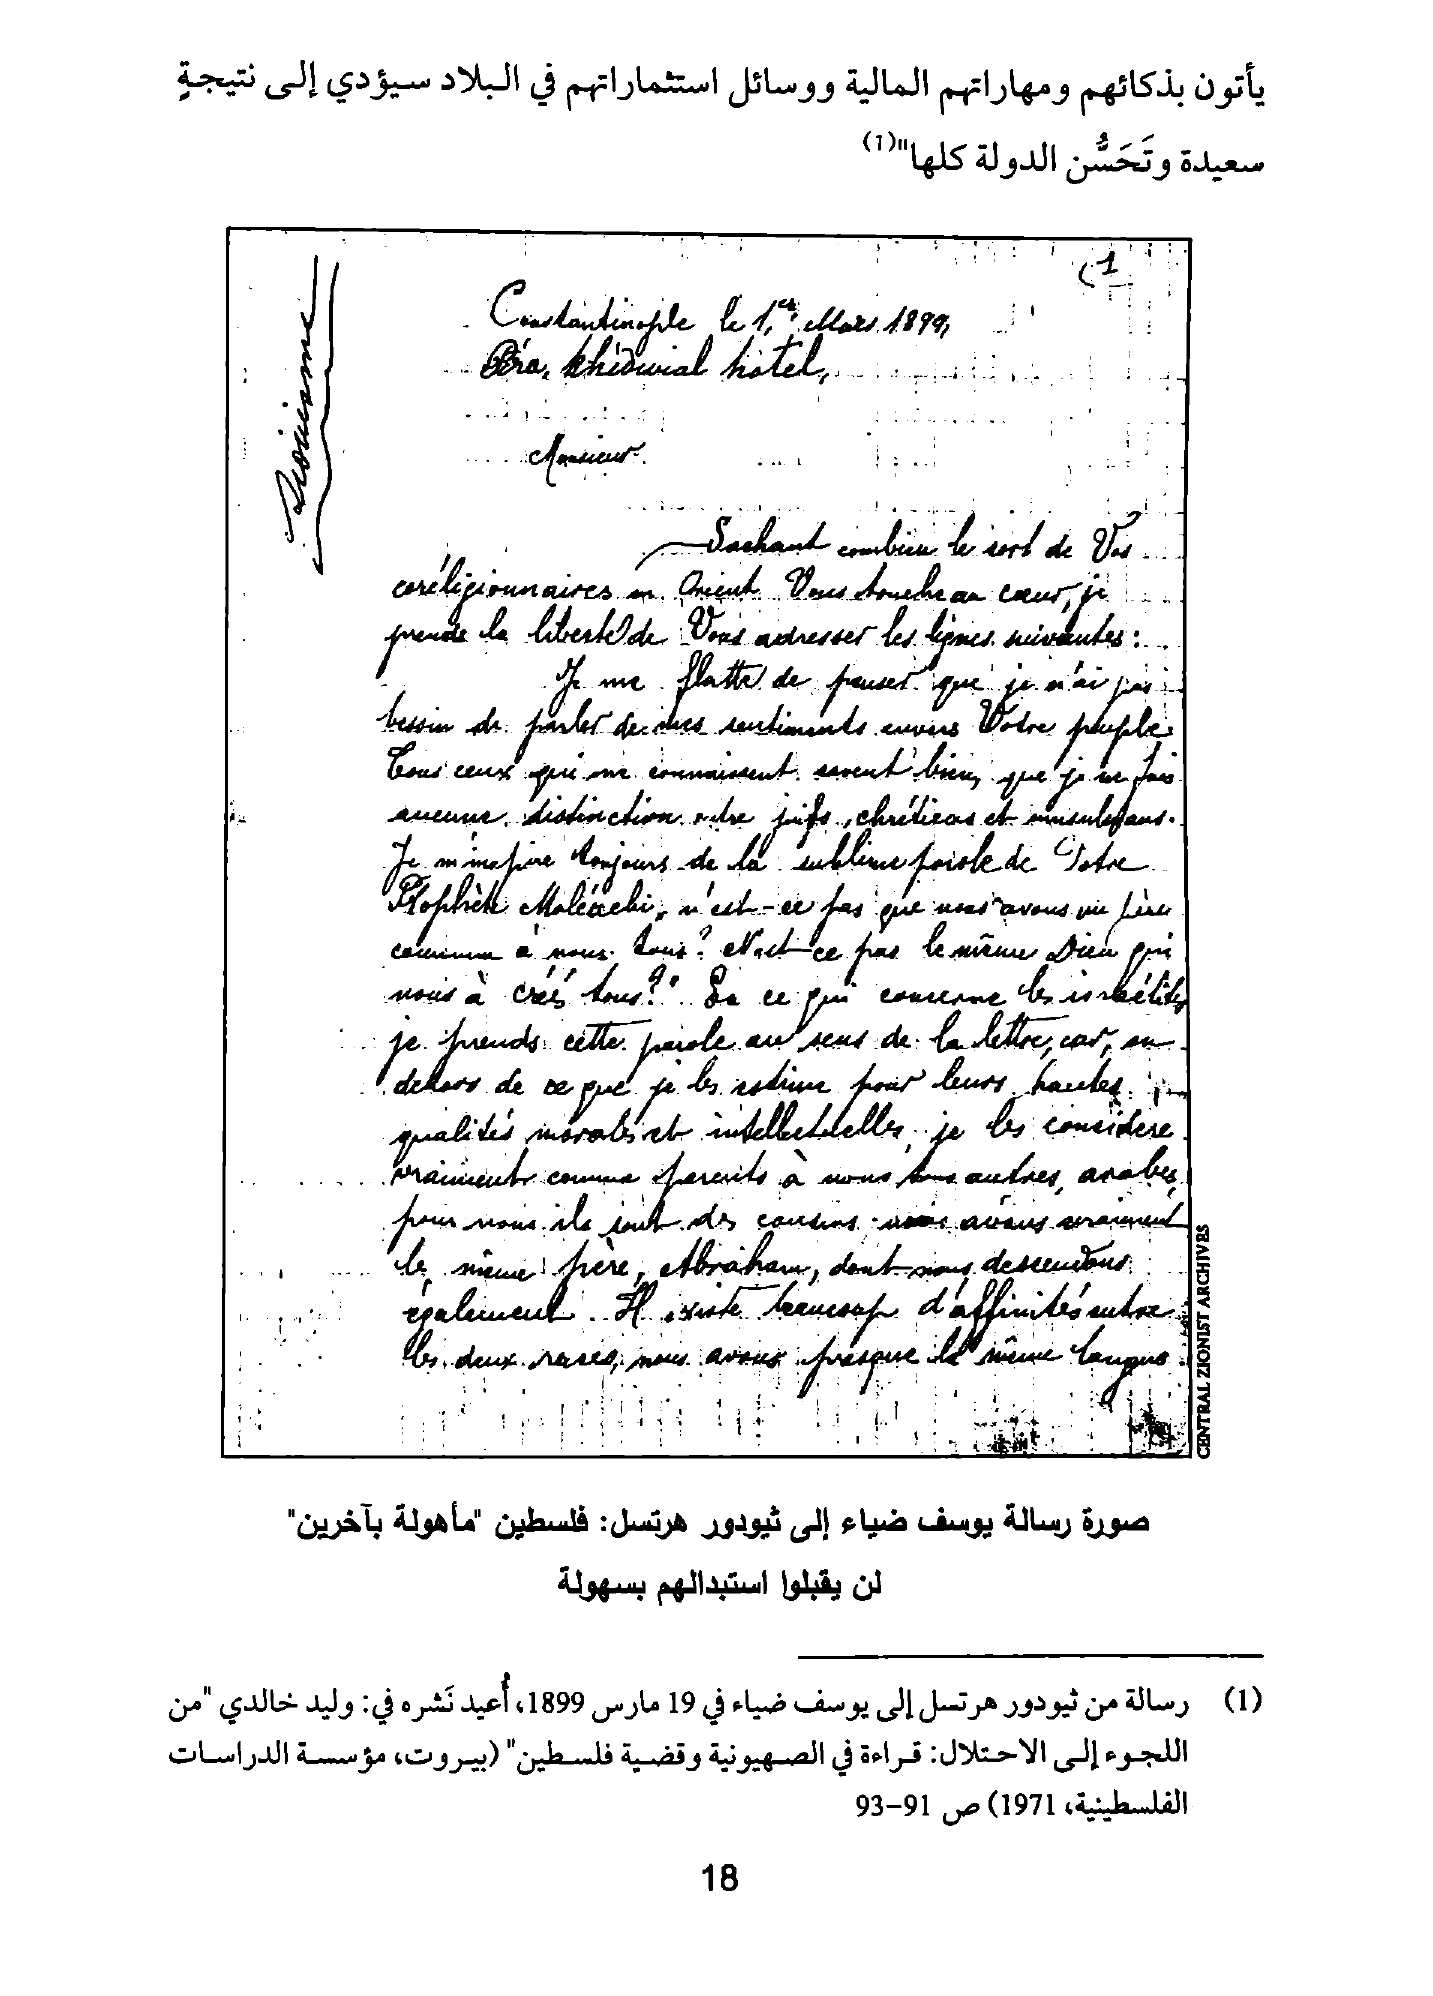 يأتون بذكائهم ومهاراتهم المالية ووسائل استثماراتهم في البلاد سيؤدي إلى نتيجةٍ
سعيدة وتَحَسُّن الدولة كلها"(1)
(1
Sionisme
Constantinople le 1er, Mars 1899,
Péra, Khédivial hôtel,
Monsieur
Sachant combien le sort de Vos
coréligionnaires en Orient Vous touche au cœur, je
prends la liberté de Vous adresser les lignes suivantes:
Je me flatte de penser que je n'ai pas
besoin de parler de mes sentiments envers Votre peuple.
Tous ceux qui me connaissent savent bien, que je ne fais
aucune distinction entre juifs, chrétiens et musulmans.
Je m'inspire toujours de la sublime parole de Votre
Prophète Malèachi, n'est-ce pas que nous avons un père
commun à nous tous? N'est-ce pas le même Dieu qui
nous à créés tous?" En ce qui concerne les israélites
je prends cette parole au sens de la lettre, car, en
dehors de ce que je les estime pour leurs hautes
qualités morales et intellectuelles, je les considère
vraiment comme parents à nous autres, arabes,
pour nous ils sont des cousins nous avons vraiment
le même père, Abraham, dont nous descendons
également. Il existe beaucoup d'affinités entre
les deux races, nous avons presque la même langue
CENTRAL ZIONIST ARCHIVES
صورة رسالة يوسف ضياء إلى ثيودور هرتسل: فلسطين "مأهولة بآخرين"
لن يقبلوا استبدالهم بسهولة
(1) رسالة من ثيودور هرتسل إلى يوسف ضياء في 19 مارس 1899، أُعيد نَشره في: وليد خالدي "من
اللجوء إلى الاحتلال: قراءة في الصهيونية وقضية فلسطين" (بيروت، مؤسسة الدراسات
الفلسطينية، 1971) ص 91-93
18